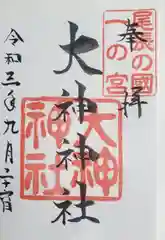 尾張の國
一の宮
奉拝
大神神社
大神
神社
令和三年九月二十一日